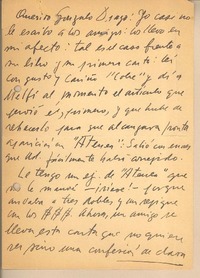 Querido Gonzalo Drago: Yo casi no
le escribo a los amigos: los llevo en
mi afecto: tal es el caso frente a
su libro y su primera carta: leí
con gusto y cariño "Cobre" y di a
Melfi al momento el artículo que
servió el primero, y que hube de
rehacerlo para que alcanzara pronta
aparición en "Atenea": Salió con errores
que Ud. fácilmente habrá corregido.
Le tengo un ej. de "Atenea" que
no le mandé - ríase! - porque
andaba a tres dobles y un repique
con los $$$. Ahora, un amigo se
lleva esta carta que no quiere
ser sino una confesión de clara